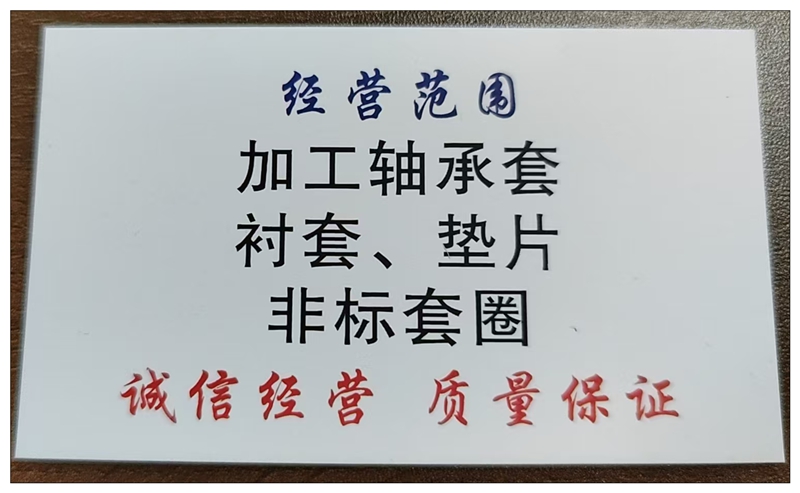 经营范围
加工轴承套
衬套、垫片
非标套圈
诚信经营 质量保证